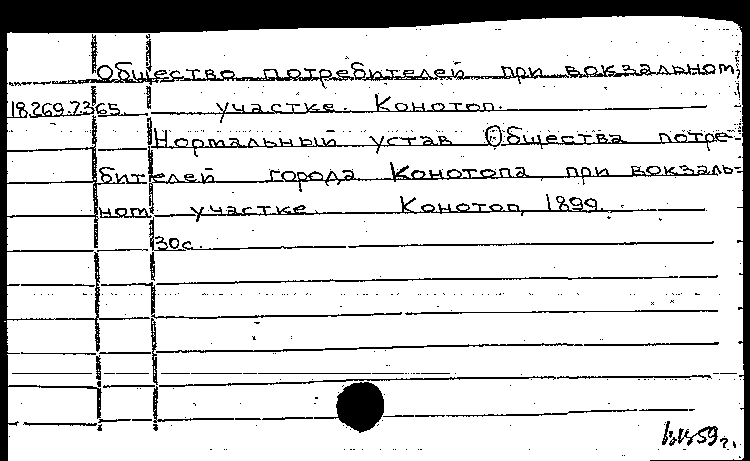 Общество потребителей при вокзальном
18.269.7.365. участке. Конотоп.
Нормальный устав Общества потре-
бителей города Конотопа при вокзаль-
ном участке. Конотоп, 1899.
30с.